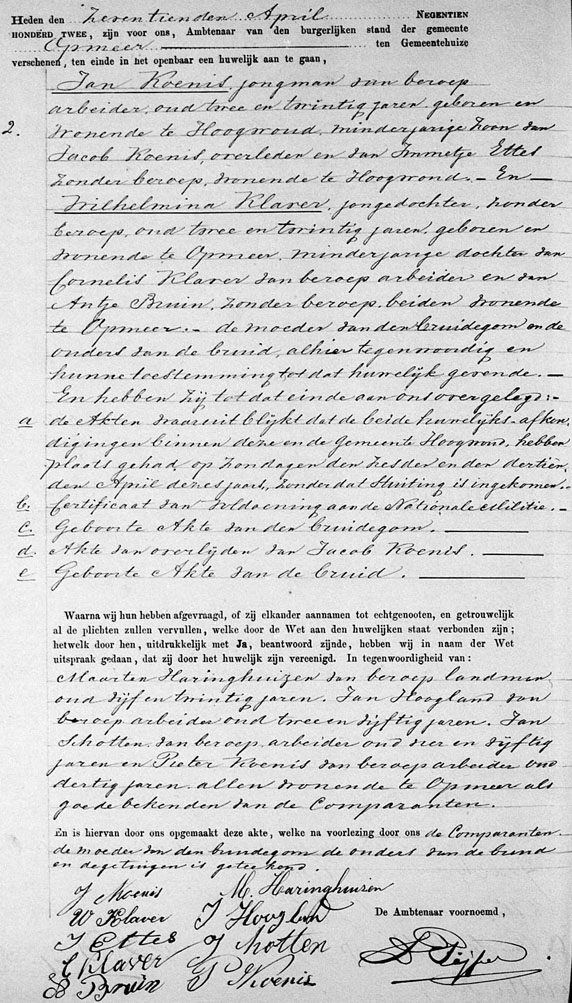 Heden den zeventienden April NEGENTIEN
HONDERD TWEE, zijn voor ons, Ambtenaar van den burgerlijken stand der gemeente
Opmeer ten Gemeentehuize
verschenen, ten einde in het openbaar een huwelijk aan te gaan,
Jan Koenis, jongman van beroep
arbeider, oud twee en twintig jaren geboren en
2. wonende te Hoogwoud, minderjarige zoon van
Jacob Koenis, overleden en van Immetje Ettes
zonder beroep, wonende te Hoogwoud. – En –
Wilhelmina Klaver, jongedochter, zonder
beroep, oud twee en twintig jaren, geboren en
wonende te Opmeer, minderjarige dochter van
Cornelis Klaver van beroep arbeider en van
Antje Bruin, zonder beroep, beiden wonende
te Opmeer. – de moeder van den bruidegom en de
ouders van de bruid, alhier tegenwoordig en
hunne toestemming tot dat huwelijk gevende. –
En hebben zij tot dat einde aan ons overgelegd: –
a de Akten waaruit blijkt dat de beide huwelijks-afkon,
digingen binnen deze en de Gemeente Hoogwoud, hebben
plaats gehad, op Zondagen den zesden en den dertien,
den April dezes jaars, zonder dat stuiting is ingekomen. –
b. Certificaat van voldoening aan de Nationale Militie. –
c. Geboorte Akte van den bruidegom.
d. Akte van overlijden van Jacob Koenis.
e Geboorte Akte van de bruid.
Waarna wij hun hebben afgevraagd, of zij elkander aannamen tot echtgenooten, en getrouwelijk
al de plichten zullen vervullen, welke door de Wet aan den huwelijken staat verbonden zijn;
hetwelk door hen, uitdrukkelijk met Ja, beantwoord zijnde, hebben wij in naam der Wet
uitspraak gedaan, dat zij door het huwelijk zijn vereenigd. In tegenwoordigheid van:
Maarten Haringhuizen van beroep landman
oud vijf en twintig jaren. Jan Hoogland van
beroep arbeider oud twee en vijftig jaren. Jan
Schotten van beroep arbeider oud vier en vijftig
jaren en Pieter Koenis van beroep arbeider oud
dertig jaren allen wonende te Opmeer als
goede bekenden van de Comparanten.
En is hiervan door ons opgemaakt deze akte, welke na voorlezing door ons de Comparanten
de moeder van den bruidegom de ouders van de bruid
en de getuigen is geteekend.
J Koenis M. Haringhuizen
W Klaver J Hoogland De Ambtenaar voornoemd,
I Ettes J Schotten
C Klaver P Koenis
A Bruin